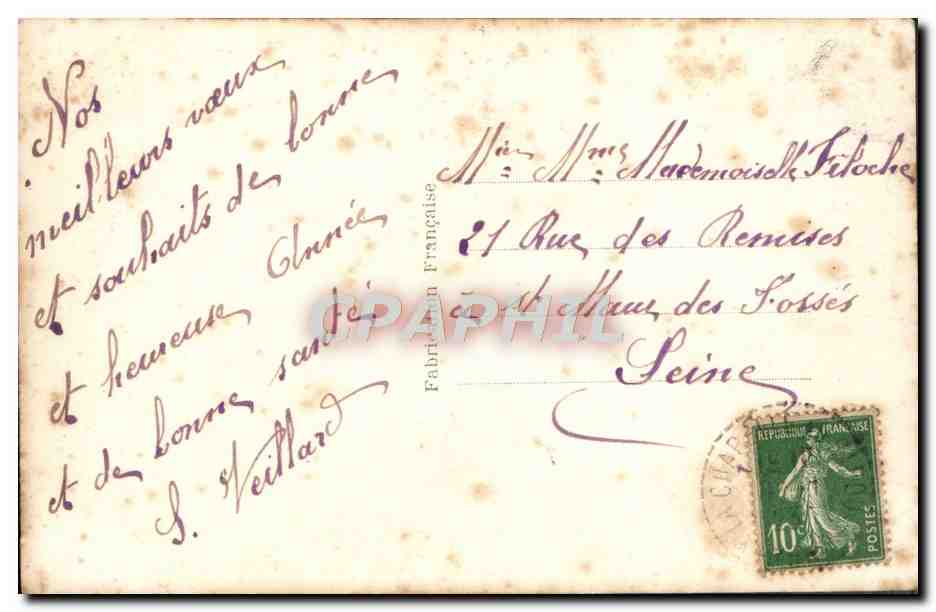 Nos
meilleurs vœux
et souhaits de bonne
et heureuse Année
et de bonne santé
S. Veillard
Fabrication Française
Mr Mme Mademoiselle Filoche
21 Rue des Remises
à St Maur des Fossés
Seine
REPUBLIQUE FRANÇAISE
10c
POSTES
CPAPHIL